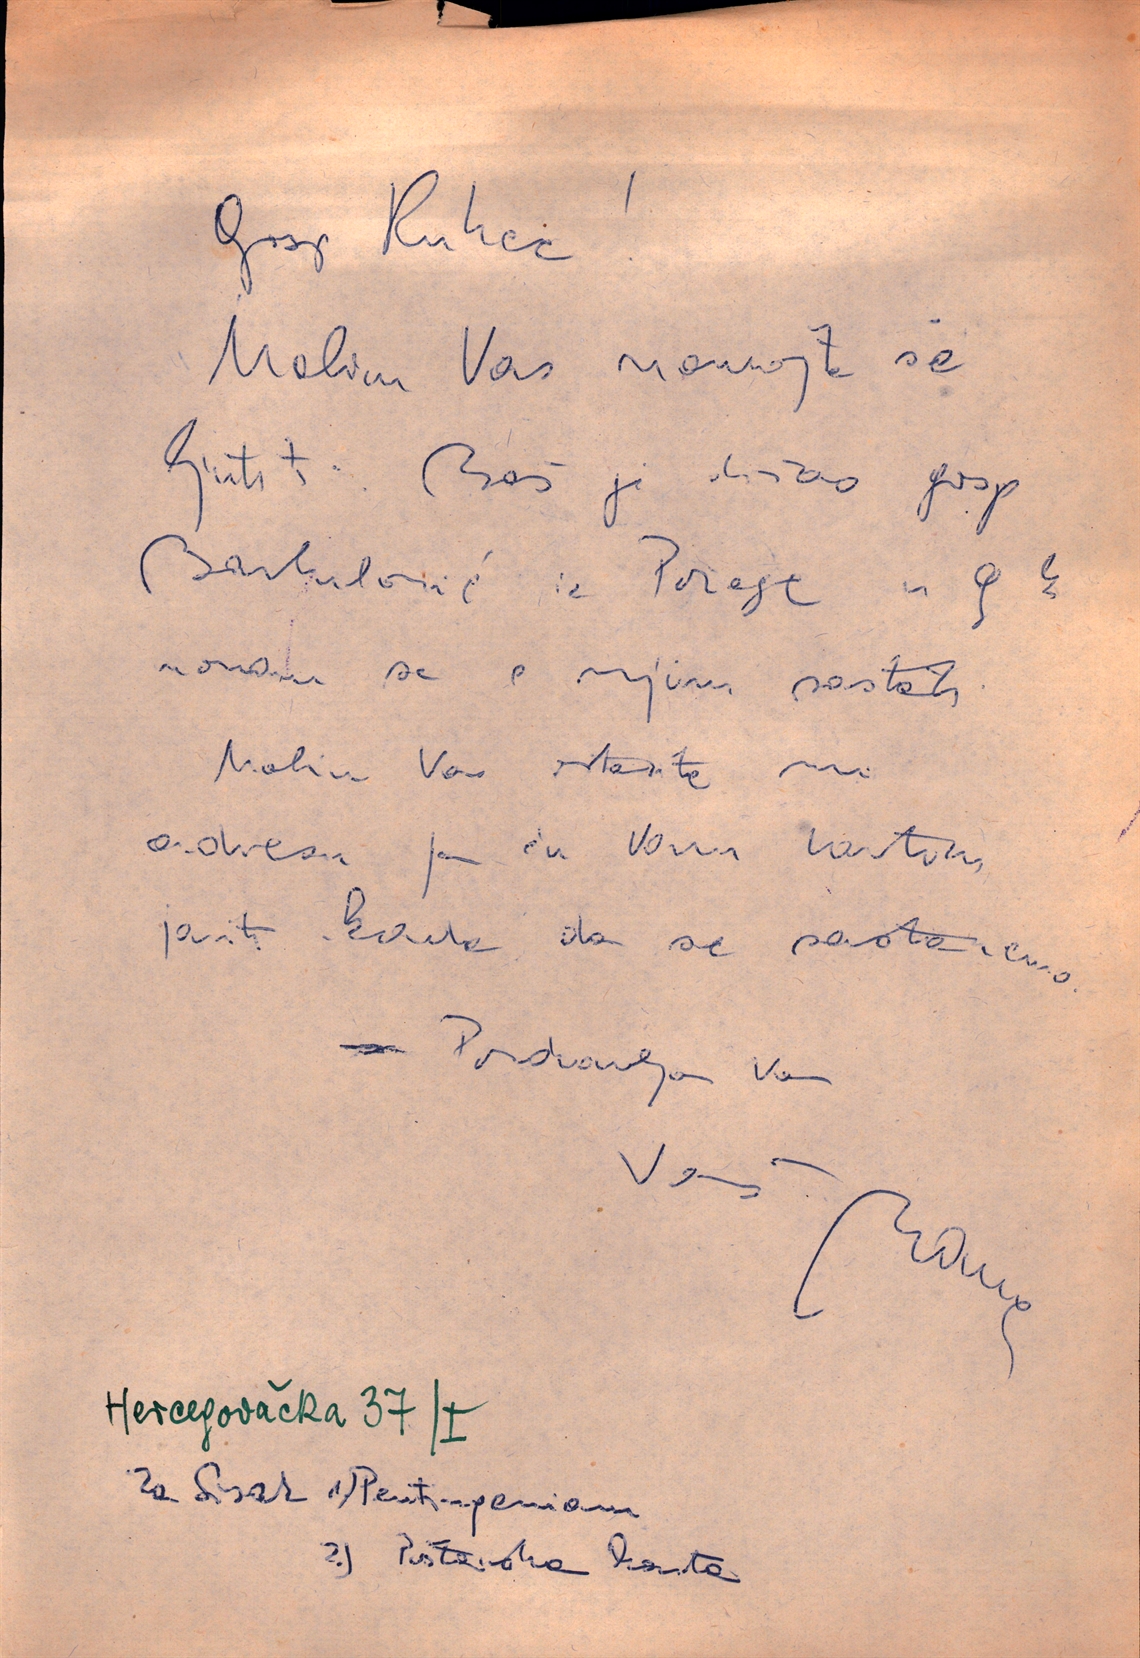 Gosp Kukec !
Molim Vas nemojte se
ljutiti. Baš je došao gosp
Bartulović iz Požege u 9 h
moram se s njim sastati.
Molim Vas ostavite mi
adresu ja ću Vam kartom
javiti kada da se sastanemo.
Pozdravlja Vas
Vaš
Hercegovačka 37/I
Za Sisak 1) Peutingeriam
2.) Poštanska karta